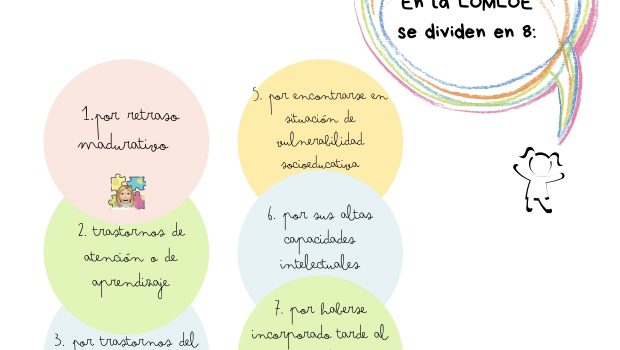 En la LOMLOE
se dividen en 8:
1.por retraso
madurativo
2. trastornos de
atención o de
aprendizaje
3. por trastornos del
5. por encontrarse en
situación de
vulnerabilidad
socioeducativa
6. por sus altas
capacidades
intelectuales
7. por haberse
incorporado tarde al